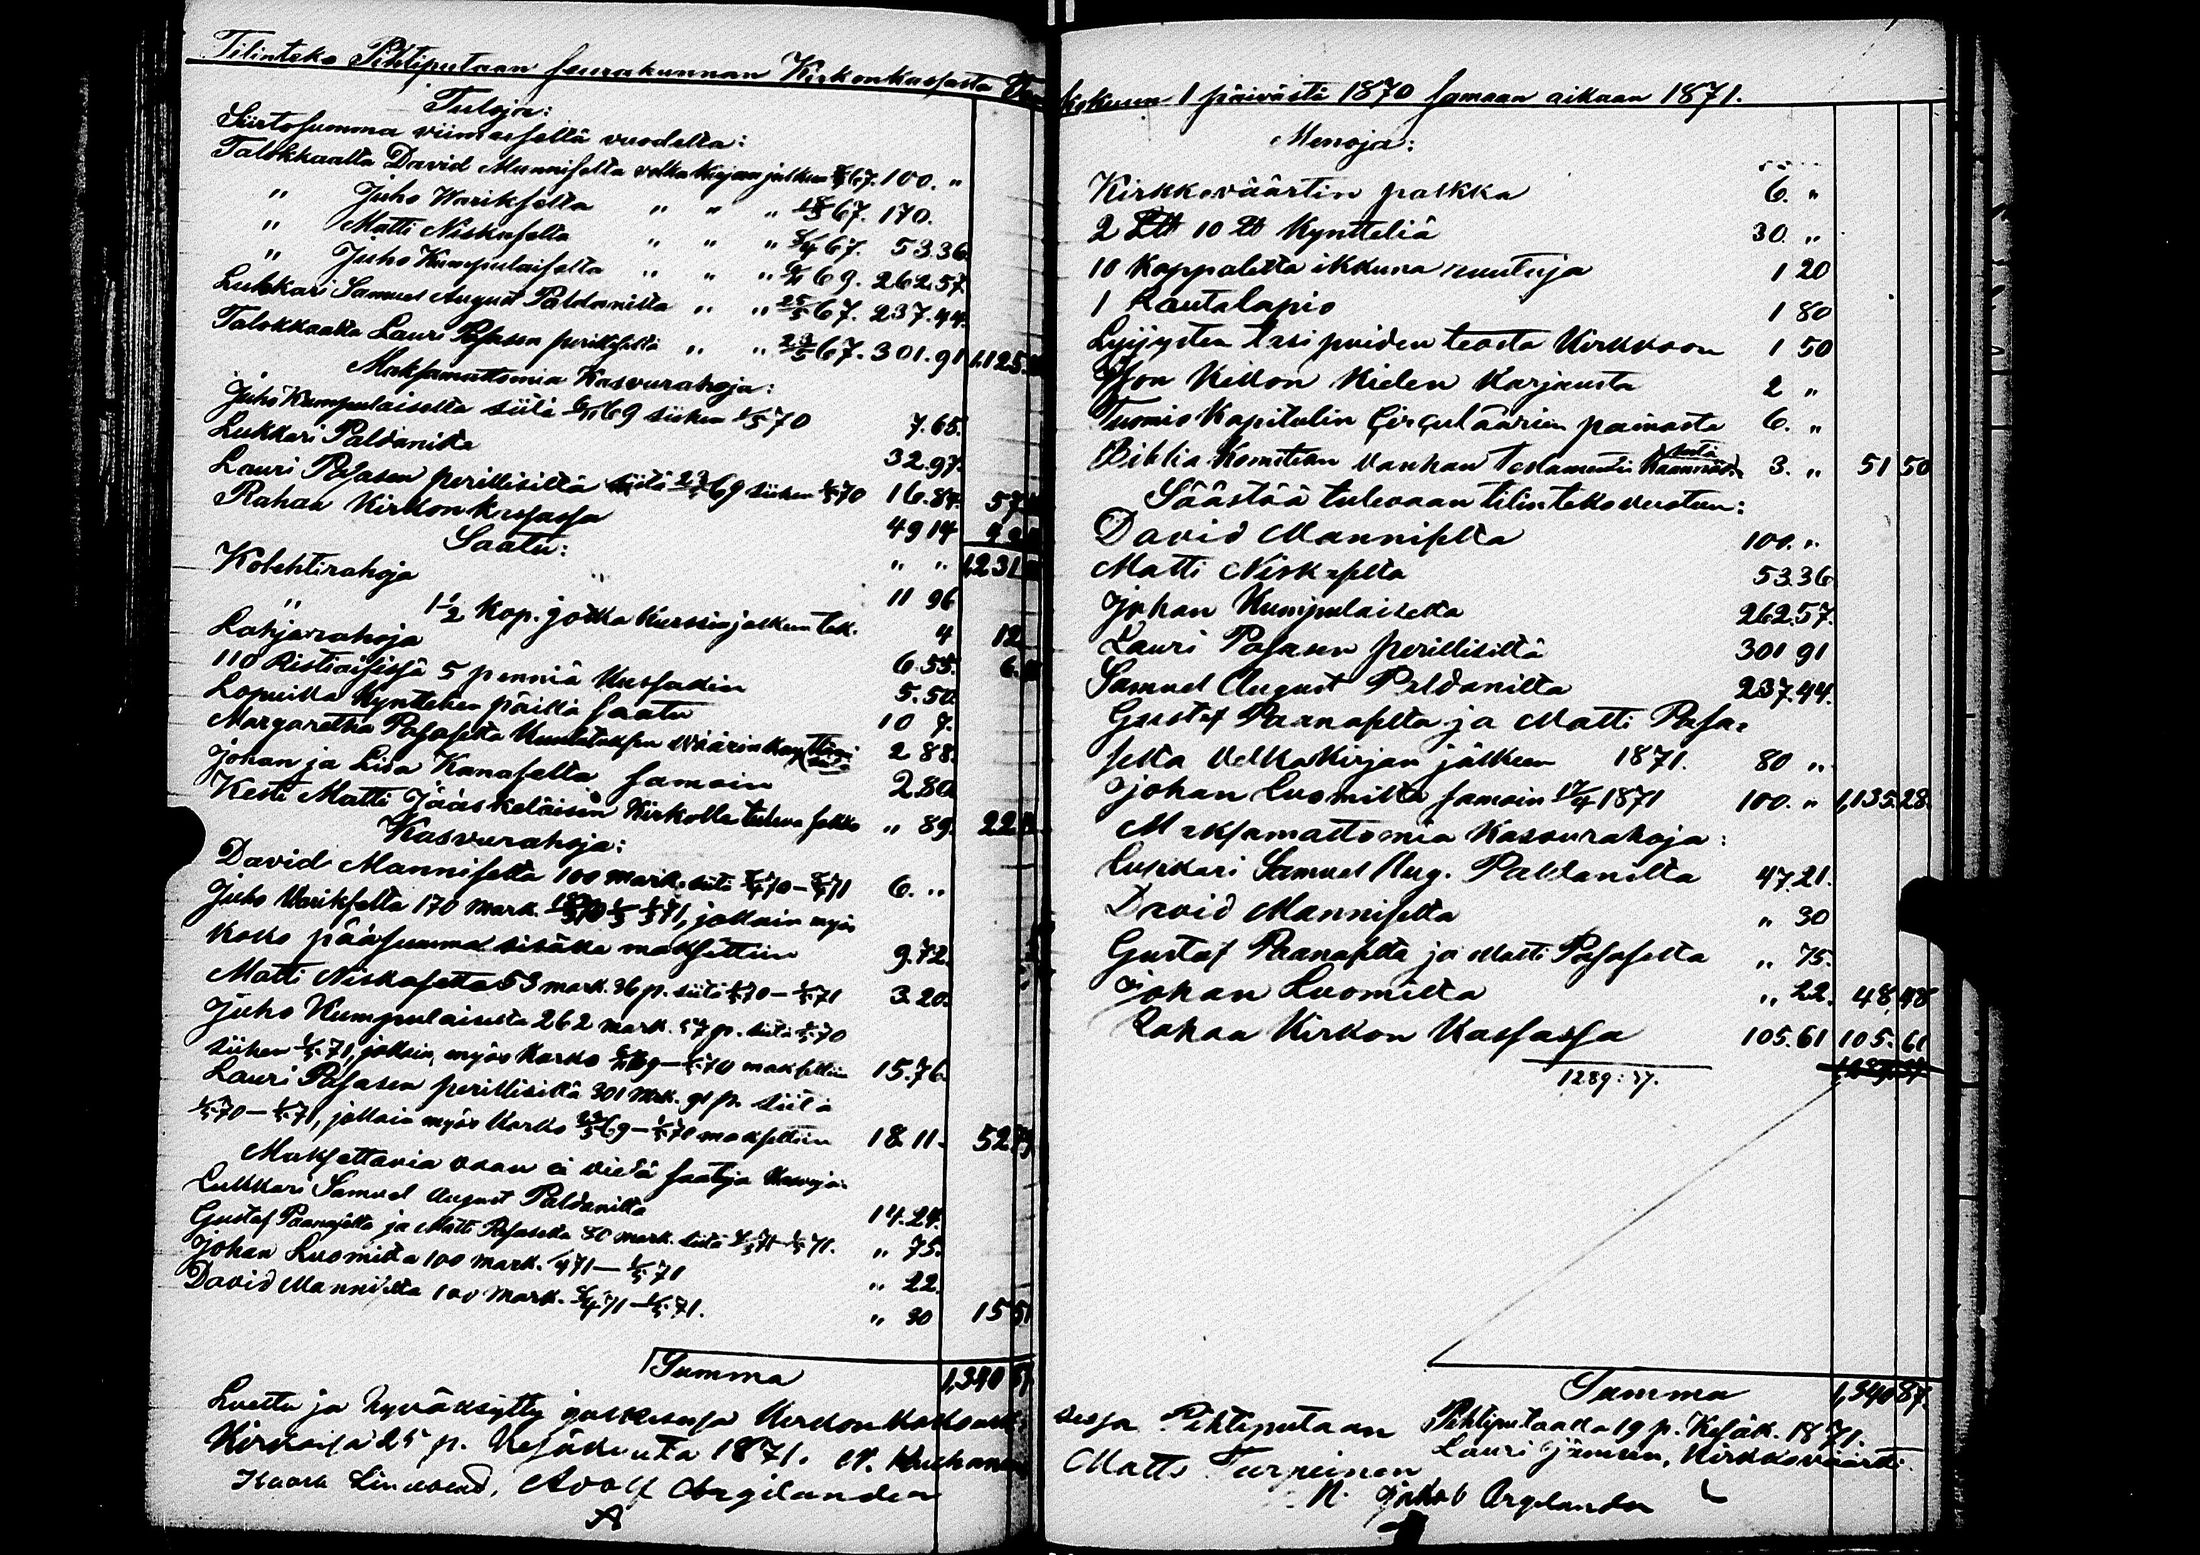 Tilinteko Pihtiputaan seurakunnan Kirkonkassasta
Tuloja:
Siirtosumma viimeiseltä vuodelta:
Talokkaalta David Manniselta velka kirjan jälkeen 67. 100. "
" Juho Warikselta " " " 67. 170.
" Matti Niskaselta " " " 67. 53 36.
" Juho Kumpulaiselta " " " 69. 262.57.
Lukkari Samuel August Paldanilta " " 25/5 67. 237.44.
Talokkaalta Lauri Pasasen perillisiltä " " 23/5 67. 301.91 1,125.
Maksamattomia Kasvurahoja:
Juho Kumpulaiselta siitä 69 siihen 1/5 70 7.65.
Lukkari Paldanilta 32.97.
Lauri Pasasen perillisiltä siitä 23/5 69 siihen 1/5 70 16.84. 57
Rahaa Kirkonkassassa 49 14
Saatu: " " 1,231
Kolehtirahoja 11 96
" 1 1/2 kop. jotka Kurssin jälkeen tek. 4 12
Lahjarahoja 6.55. 6.
110 Ristiäisissä 5 penniä Kussakin 5.50.
Lopuilta Kynttelien päiltä saatu 10 7.
Margaretha Pasaselta Kuulutuksen väärinkäyttämisestä 2 88.
Johan ja Lisa Kanaselta samoin 2.80.
Kesti Matti Jääskeläisen Kirkolle tuleva sakko " 89. 22
Kasvurahoja:
David Manniselta 100 mark. siitä 70 – 71 6. "
Juho Warikselta 170 mark. 71, jolloin myös
koko pääsumma sisälle maksettiin 9.72.
Matti Niskaselta 53 mark. 36 p. siitä 1/5 70 – 1/5 71 3.20.
Juho Kumpulaiselta 262 mark. 57 p. siitä 1/5 70
siihen 1/5 71, jolloin myös Korko 69 – 1/5 70 maksettiin 15.76.
Lauri Pasasen perillisiltä 301 mrk. 91 p. siitä
1/5 70 – 1/5 71, jolloin myös Korko 23/5 69 – 1/5 70 maksettiin 18.11. 52 79
Maksettavia vaan ei vielä saatuja Kasvuja.
Lukkari Samuel August Paldanilta 14.24.
Gustaf Paanaselta ja Matti Pasaselta 80 mark. siitä 71 – 1/5 71. " 75.
Johan Luomilta 100 mark. 71 – 1/5 71 " 22.
David Manniselta 100 mark. 71 – 1/5 71. " 30 15 51
Summa 1,340 87
Luettu ja hyväksytty julkisessa Kirkonkokouk-
Kirkossa 25 p. Kesäkuuta 1871.
Kaarl Adolf Argilander
kokuun 1 päivästä 1870 samaan aikaan 1871.
Menoja:
Kirkkoväärtin palkka 6. "
2 L℔ 10 ℔ Kynttiliä 30. "
10 Kappaletta ikkuna ruutuja 1 20
1 Rautalapio 1 80
Lyijysten teosta Kirkkoon 1 50
Ison Kellon Kielen Korjausta 2 "
Tuomio Kapitulin Circuläärien painosta 6. "
Biblia Komitean Vanhan Testamentin 3. " 51 50
Säästöä tulevaan tilinteko vuoteen:
David Manniselta 100. "
Matti Niskaselta 53.36
Johan Kumpulaiselta 262.57.
Lauri Pasasen perillisiltä 301 91
Samuel August Paldanilta 237.44.
Gustaf Paanaselta ja Matti Pasa-
selta Velkakirjan jälkeen 1871. 80 "
Johan Luomilta samoin 17/4 1871 100. " 1,135.28.
Maksamattomia Kasvurahoja:
Lukkari Samuel Aug. Paldanilta 47.21.
David Manniselta " 30
Gustaf Paanaselta ja Matti Pasaselta " 75.
Johan Luomilta " 22. 48,48
Rahaa Kirkon Kassassa 105.61 105.61
1289:37.
Summa 1,340 87.
sessa Pihtiputaan Pihtiputaalla 19 p. Kesäk. 1871.
Lauri Jämsen, Kirkkoväärti.
Matts Turpeinen
Jakob Argilander